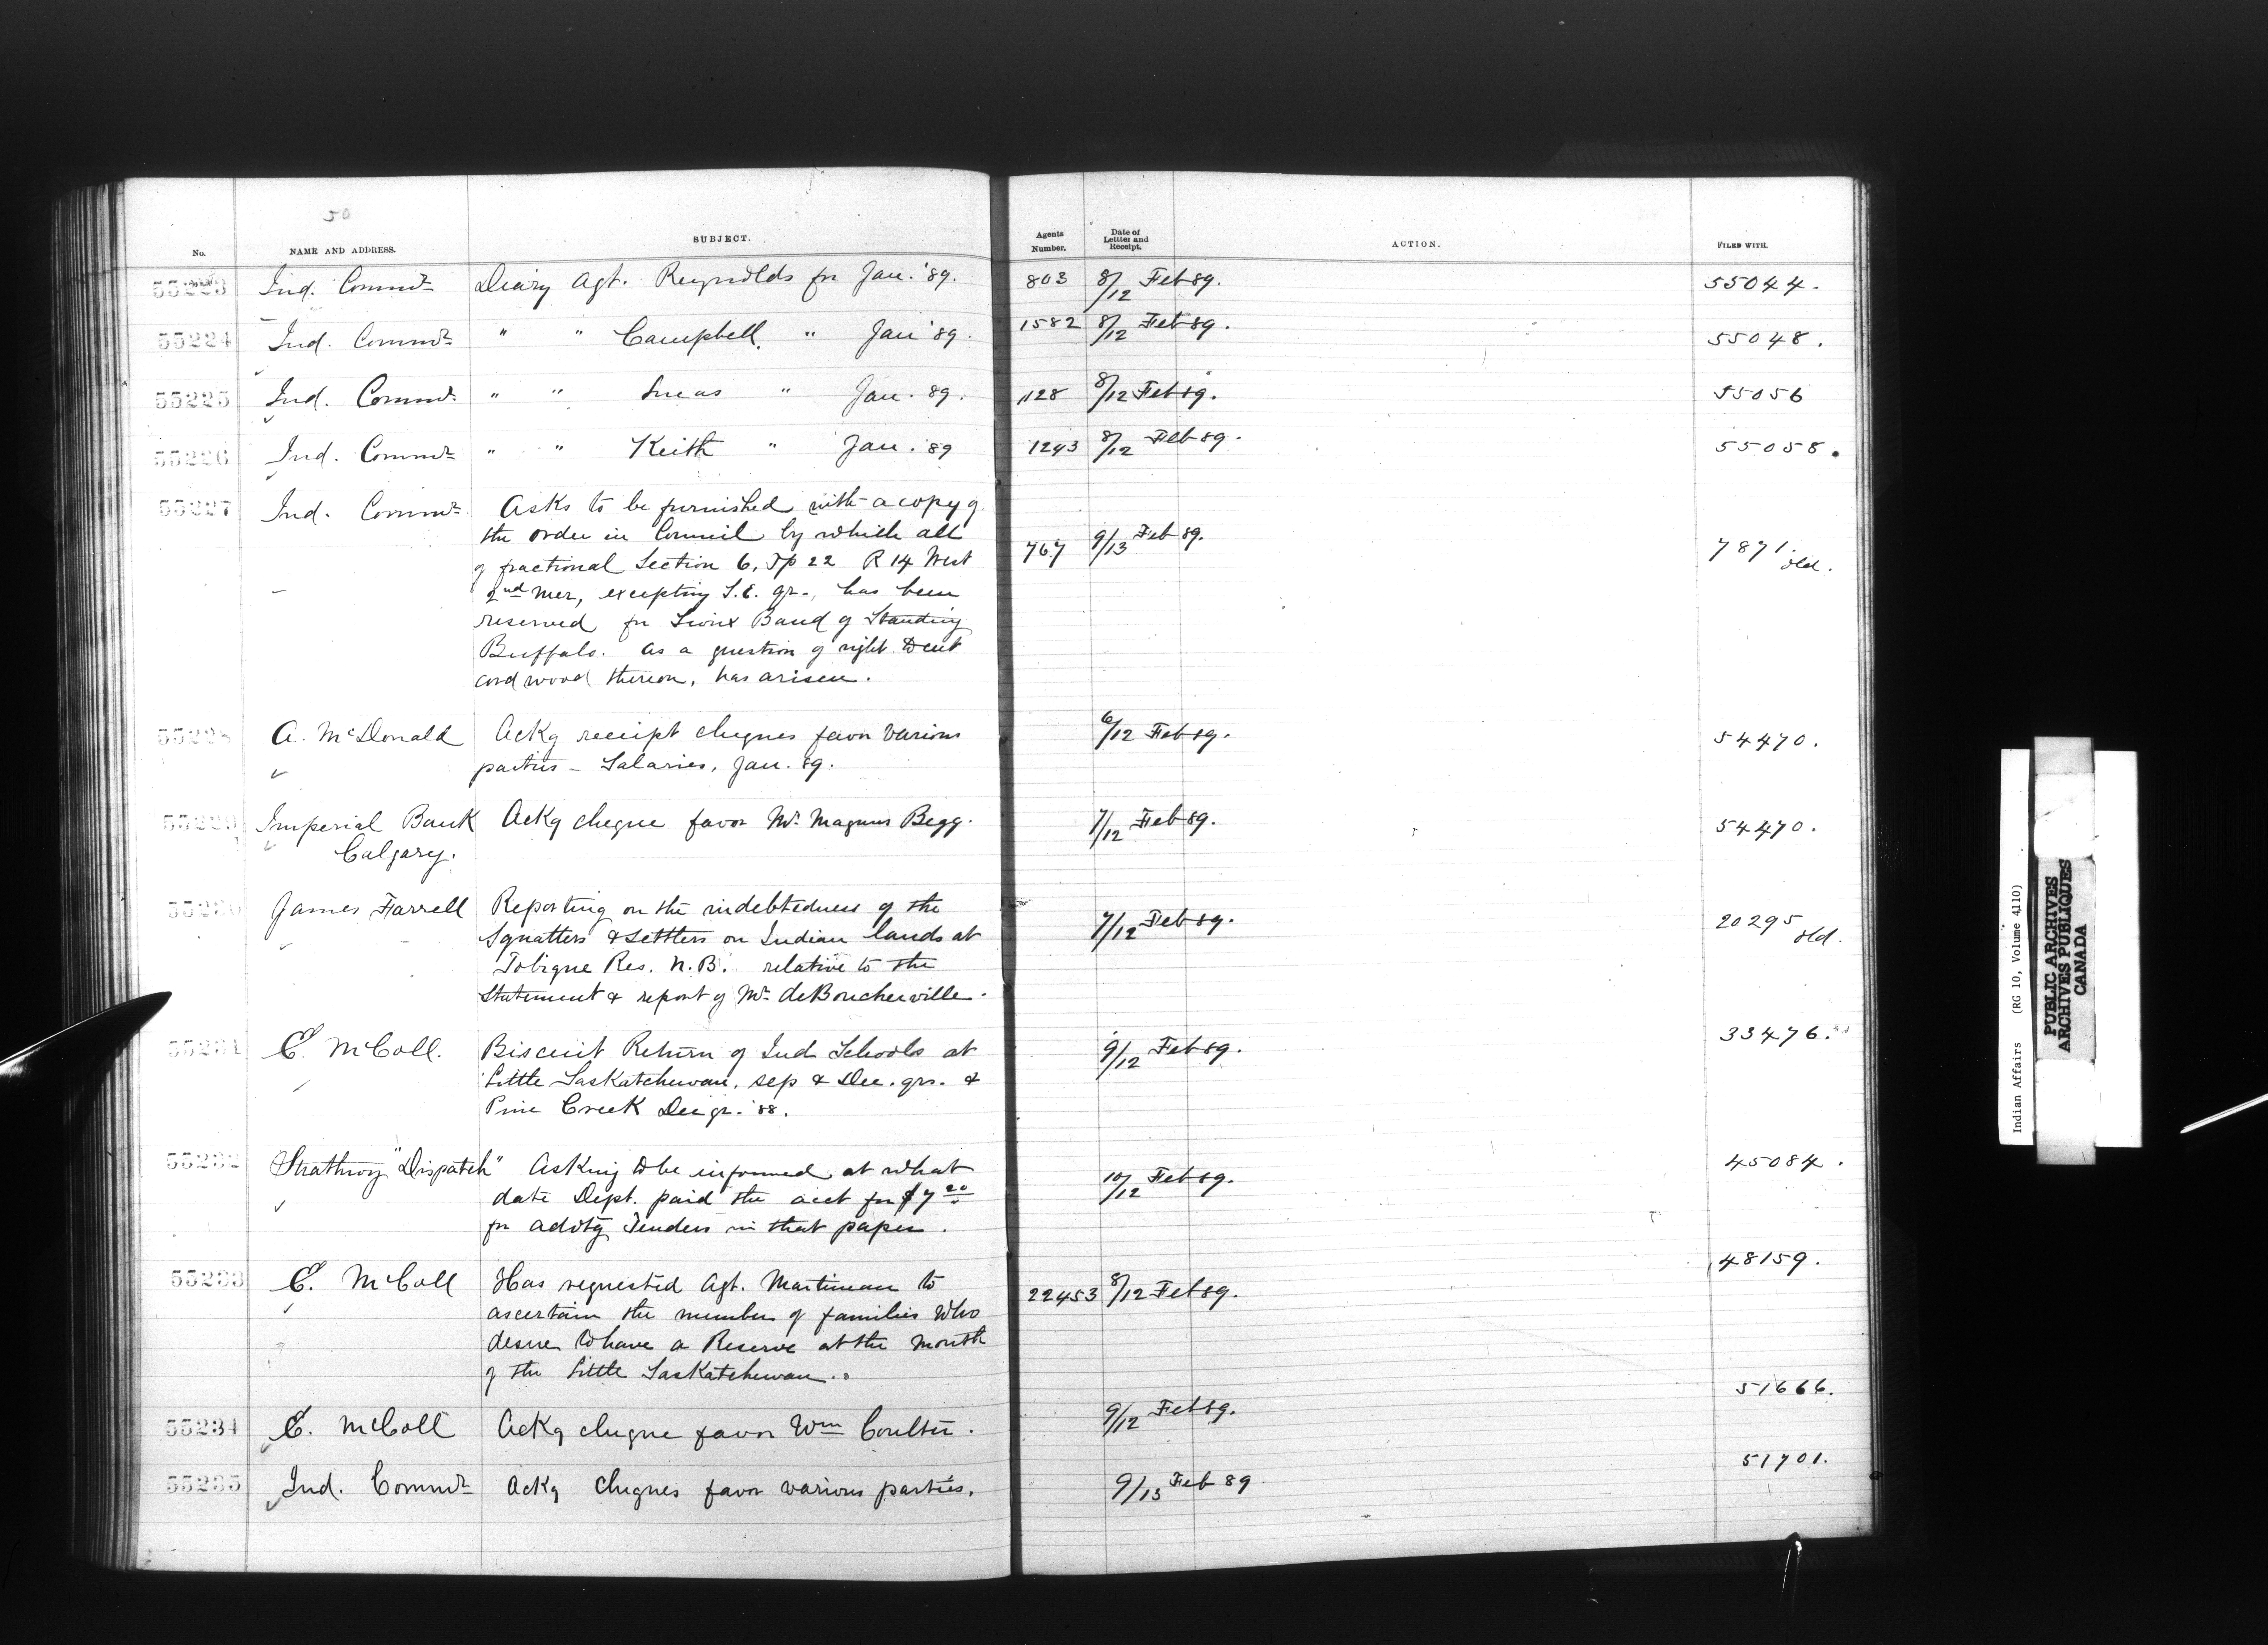 50
No.
NAME AND ADDRESS.
SUBJECT.
Agents Number.
Date of Lettter and Receipt.
ACTION.
FILED WITH.
55223 Ind. Commr Diary Agt. Reynolds for Jan. '89. 803 8/12 Feb 89. 55044.
55224 Ind. Commr " " Campbell " Jan '89. 1582 8/12 Feb 89. 55048.
55225 Ind. Commr " " Lucas " Jan. 89. 1128 8/12 Feb 89. 55056
55226 Ind. Commr " " Keith " Jan. '89 1243 8/12 Feb 89. 55058.
55227 Ind. Commr Asks to be furnished with a copy of
the order in Council by which all
of fractional Section 6, Tp 22 R 14 West 767 9/13 Feb 89. 7871 old.
2nd Mer, excepting S.E. qr., has been
reserved for Sioux Band of Standing
Buffalo. As a question of right to cut
cord wood thereon, has arisen.
55228 A. McDonald Ackg receipt cheques favor various 6/12 Feb 89. 54470.
parties – Salaries, Jan. 89.
55229 Imperial Bank Ackg cheque favor Mr. Magnus Begg. 7/12 Feb 89. 54470.
Calgary.
55230 James Farrell Reporting on the indebtedness of the 7/12 Feb 89. 20295 old.
Squatters & Settlers on Indian lands at
Tobique Res. N.B. relative to the
Statement & report of Mr. deBoucherville.
55231 E. McColl. Biscuit Return of Ind Schools at 9/12 Feb 89. 33476.
Little Saskatchewan, Sep & Dec. qrs. &
Pine Creek Dec qr. '88.
55232 Strathroy "Dispatch" Asking to be informed at what 10/12 Feb 89. 45084.
date Dept. paid the acct for $7 20
for advtg Tenders in that paper.
55233 E. McColl Has requested Agt. Martineau to 22453 8/12 Feb 89. 48159.
ascertain the number of families who
desire to have a Reserve at the mouth
of the Little Saskatchewan.
55234 E. McColl Ackg cheque favor Wm Coulter. 9/12 Feb 89. 51666.
55235 Ind. Commr Ackg cheques favor various parties. 9/13 Feb 89 51701.
Indian Affairs (RG 10, Volume 4110)
PUBLIC ARCHIVES
ARCHIVES PUBLIQUES
CANADA